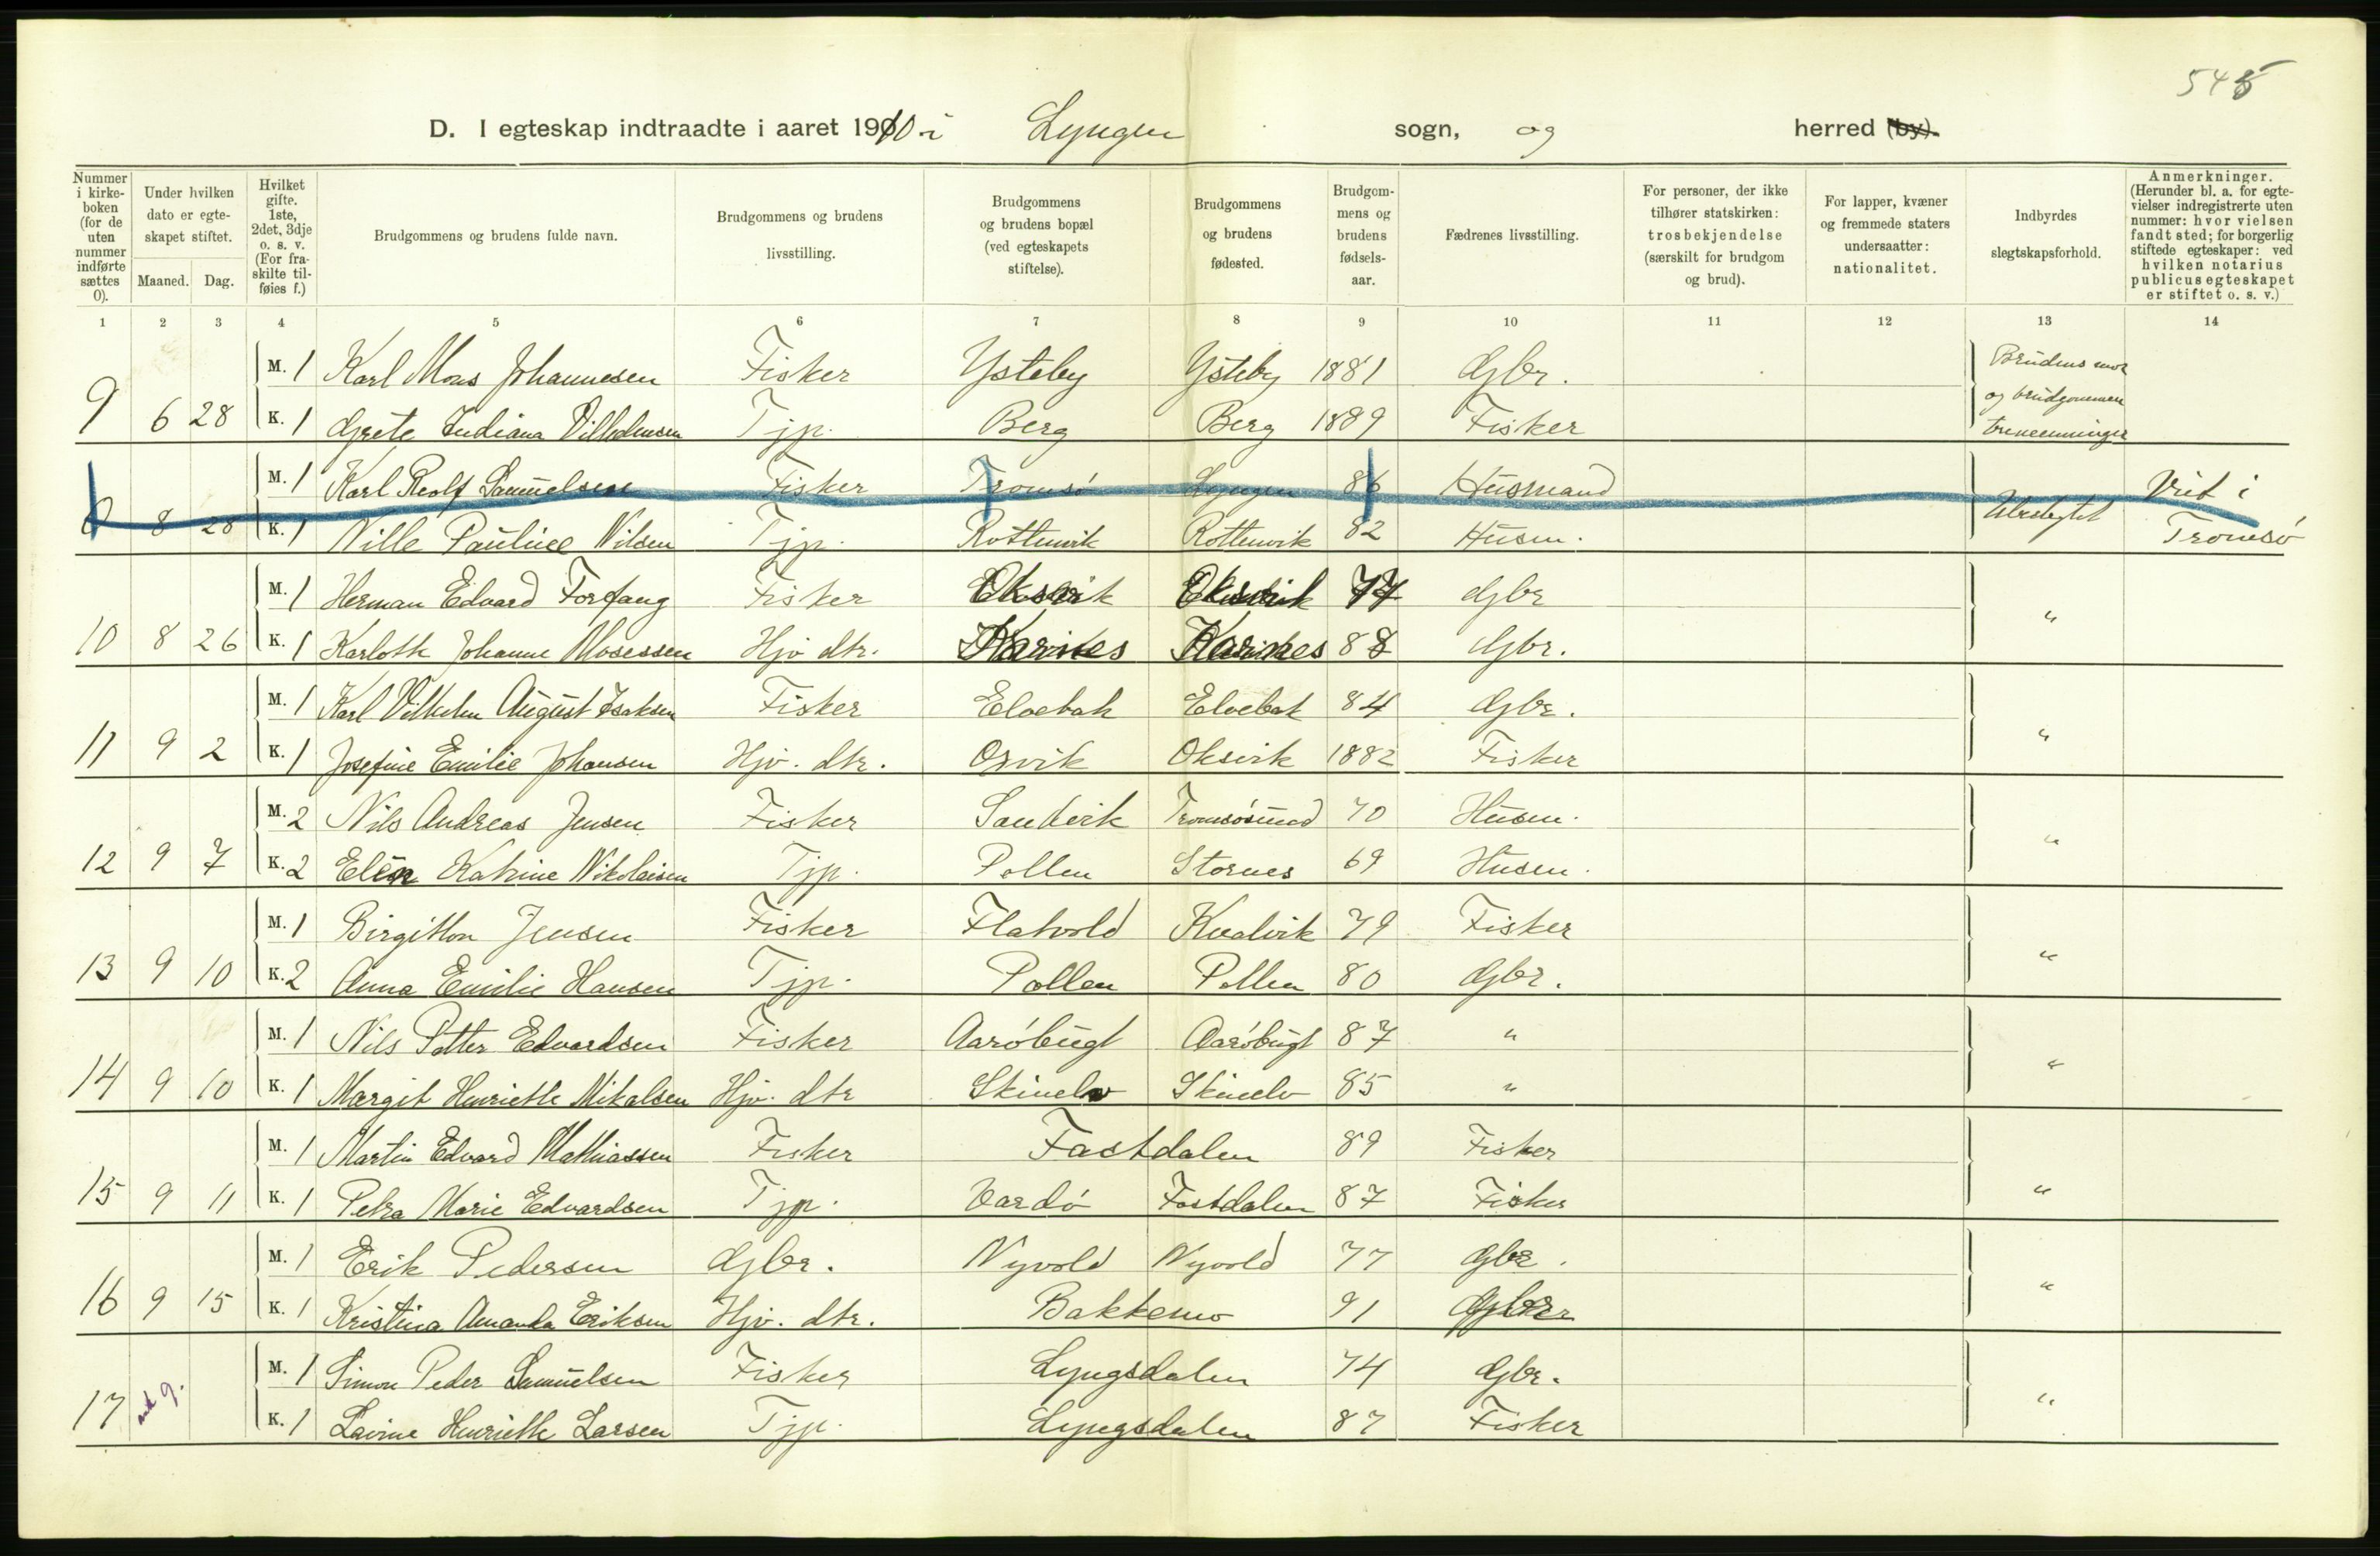 545
D. I egteskap indtraadte i aaret 1910 i Lyngen sogn, og herred (by).
Nummer i kirkeboken (for de uten nummer indførte sættes 0).
Under hvilken dato er egteskapet stiftet.
Maaned. Dag.
Hvilket gifte. 1ste, 2det, 3dje o. s. v. (For fraskilte tilføies f.)
Brudgommens og brudens fulde navn.
Brudgommens og brudens livsstilling.
Brudgommens og brudens bopæl (ved egteskapets stiftelse).
Brudgommens og brudens fødested.
Brudgommens og brudens fødselsaar.
Fædrenes livsstilling.
For personer, der ikke tilhører statskirken: trosbekjendelse (særskilt for brudgom og brud).
For lapper, kvæner og fremmede staters undersaatter: nationalitet.
Indbyrdes slegtskapsforhold.
Anmerkninger. (Herunder bl. a. for egtevielser indregistrerte uten nummer: hvor vielsen fandt sted; for borgerlig stiftede egteskaper: ved hvilken notarius publicus egteskapet er stiftet o. s. v.)
1 2 3 4 5 6 7 8 9 10 11 12 13 14
M. 1 Karl Mons Johannesen Fisker Ysteby Ysteby 1881 Gbr. Brudens mor
og brudgommen
9 6 28 K. 1 Grete Indiana Vilhelmsen Tjp. Berg Berg 1889 Fisker tremenninger
M. 1 Karl Rolf Samuelsen Fisker Tromsø Lyngen 86 Husmand Viet i
0 8 28 K. 1 Nille Pauline Nilsen Tjp. Rottenvik Rottenvik 82 Husm. Ubeslegtet Tromsø
M. 1 Herman Edvard Forfang Fisker Oksvik Oksvik 77 Gbr
10 8 26 K. 1 Karlotte Johanne Mosessen Hjv dtr. Karnes Karnes 88 Gbr. "
M. 1 Karl Vilhelm August Isaksen Fisker Elvebak Elvebak 84 Gbr.
11 9 2 K. 1 Josefine Emilie Johansen Hjv. dtr. Oxvik Oksvik 1882 Fisker "
M. 2 Nils Andreas Jensen Fisker Sandvik Tromsøsund 70 Husm.
12 9 7 K. 2 Elen Katrine Nikolaisen Tjp. Pollen Stornes 69 Husm. "
M. 1 Birgitton Jensen Fisker Flatvold Kvalvik 79 Fisker
13 9 10 K. 2 Anna Emilie Hansen Tjp. Pollen Pollen 80 Gbr. "
M. 1 Nils Petter Edvardsen Fisker Aarøbugt Aarøbugt 87 "
14 9 10 K. 1 Margit Henriette Mikalsen Hjv. dtr Skinelv Skinelv 85 " "
M. 1 Martin Edvard Mathiassen Fisker Fastdalen 89 Fisker
15 9 11 K. 1 Petra Marie Edvardsen Tjp. Vardø Fastdalen 87 Fisker "
M. 1 Erik Pedersen Gbr. Nyvold Nyvold 77 Gbr.
16 9 15 K. 1 Kristina Amanda Eriksen Hjv. dtr. Bakkemo 91 Gbr "
M. 1 Simon Peder Samuelsen Fisker Lyngsdalen 74 Gbr.
17 9. K. 1 Lavine Henriette Larsen Tjp. Lyngsdalen 87 Fisker "